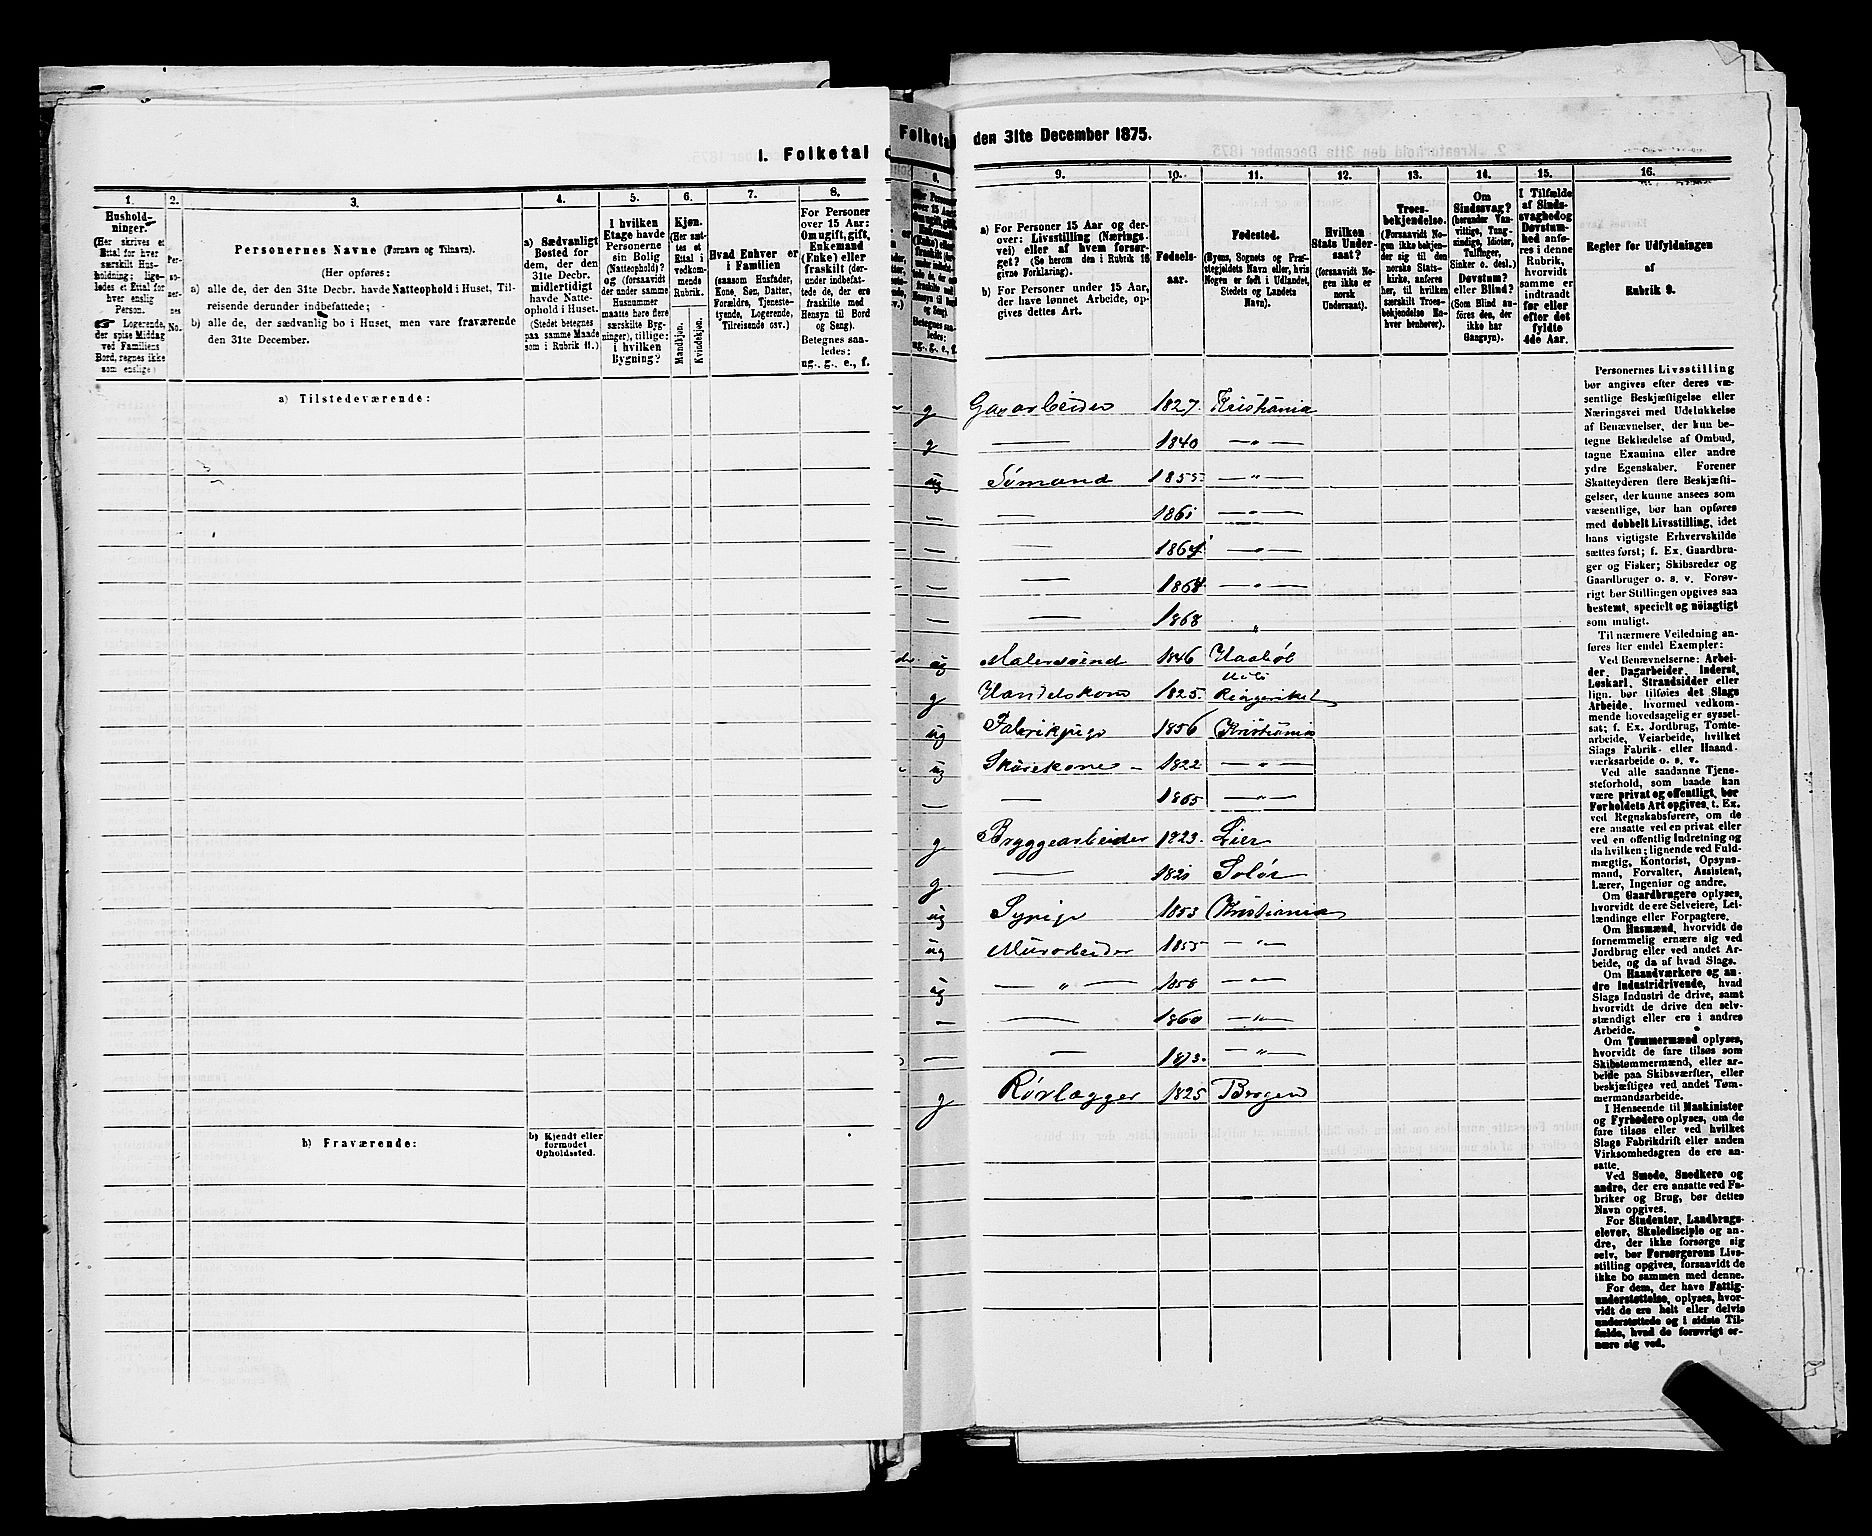 I. Folketal
1.
2.
3.
4.
5.
6.
7.
8.
Hushold-
ninger.
(Her skrives et
Ettal for hver
særskilt Hus-
holdning; lige-
ledes et Ettal for
hver enslig
Person.
☞ Logerende,
der spise Middag
ved Familiens
Bord, regnes ikke
som enslige.)
Per-
so-
ner-
nes
No.
Personernes Navne (Fornavn og Tilnavn).
(Her opføres:
a) alle de, der den 31te Decbr. havde Natteophold i Huset, Til-
reisende derunder indbefattede;
b) alle de, der sædvanlig bo i Huset, men vare fraværende
den 31te December.
a) Sædvanligt
Bosted for
dem, der den
31te Decbr.
midlertidigt
havde Natte-
ophold i Huset.
(Stedet betegnes
paa samme Maade
som i Rubrik 11.)
I hvilken
Etage havde
Personerne
sin Bolig
(Natteophold)?
(forsaavidt
der under samme
Husnummer
maatte høre flere
særskilte Byg-
ninger), tillige:
i hvilken
Bygning?
Kjøn.
(Her sæt-
tes et
Ettal i
vedkom-
mende
Rubrik.
Mandkjøn.
Kvindekjøn.
Hvad Enhver er
i Familien
(saasom Husfader,
Kone, Søn, Datter,
Forældre, Tjeneste-
tyende, Logerende,
Tilreisende osv.)
For Personer
over 15 Aar:
Om ugift, gift,
Enkemand
(Enke) eller
fraskilt (der-
under indbefat-
tede de, der ere
fraskilte med
Hensyn til Bord
og Seng).
Betegnes saa-
ledes:
ug., g., e., f.
a) Tilstedeværende:
b) Fraværende:
b) Kjendt eller
formodet
Opholdssted.
Folketal
den 31te December 1875.
8.
9.
10.
11.
12.
13.
14.
15.
16.
a) For Personer 15 Aar og der-
over: Livsstilling (Nærings-
vei) eller af hvem forsør-
get? (Se herom den i Rubrik 16
givne Forklaring).
b) For Personer under 15 Aar,
der have lønnet Arbeide, op-
gives dettes Art.
Fødsels-
aar.
Fødested.
(Byens, Sognets og Præ-
stegjeldets Navn eller, hvis
Nogen er født i Udlandet,
Stedets og Landets
Navn).
Hvilken
Stats Under-
saat?
(forsaavidt No-
gen ikke er
norsk
Undersaat).
Troes-
bekjendelse.
(Forsaavidt No-
gen ikke bekjen-
der sig til den
norske Stats-
kirke, anføres
her, til hvilken
særskilt Troes-
bekjendelse En-
hver henhører).
Om
Sindssvag?
(herunder Van-
vittige, Tung-
sindige, Idioter,
Tullinger,
Sinker o. desl.)
Døvstum?
eller Blind?
(Som Blind an-
føres den, der
ikke har
Gangsyn).
I Tilfælde
af Sinds-
svaghed og
Døvstum-
hed anfø-
res i denne
Rubrik,
hvorvidt
samme er
indtraadt
før eller
efter det
fyldte
4de Aar.
Regler for Udfyldningen
af
Rubrik 9.
g Gasarbeider 1827. Kristiania
g — 1840 — „ —
ug Sømand 1855 — „ —
— — 1861 — „ —
— — 1864 — „ —
— — 1868 — „ —
— — 1868 „
ug Malersvend 1846 Haabøl
g Handelskone 1825. Ringeriket
ug Fabrikpige 1856 Kristiania
ug Skurekone — 1822 — „ —
— — 1865 — „ —
g Bryggearbeider 1823. Lier
g — 1821 Solør
ug Sypige 1853 Kristiania
ug Murarbeider 1855 — „ —
ug — „ — 1858 — „ —
— — 1860 — „ —
— — 1873. — „ —
g Rørlægger 1825 Bergen
Personernes Livsstilling
bør angives efter deres væ-
sentlige Beskjæftigelse eller
Næringsvei med Udelukkelse
af Benævnelser, der kun be-
tegne Beklædelse af Ombud,
tagne Examina eller andre
ydre Egenskaber. Forener
Skatteyderen flere Beskjæfti-
gelser, der kunne ansees som
væsentlige, bør han opføres
med dobbelt Livsstilling, idet
hans vigtigste Erhvervskilde
sættes først; f. Ex. Gaardbru-
ger og Fisker; Skibsreder og
Gaardbruger o. s. v. Forøv-
rigt bør Stillingen opgives saa
bestemt, specielt og nöiagtigt
som muligt.
Til nærmere Veiledning an-
føres her endel Exempler:
Ved Benævnelserne: Arbei-
der, Dagarbeider, Inderst,
Løskarl, Strandsidder eller
lign. bør tilføies det Slags
Arbeide, hvormed vedkom-
mende hovedsagelig er syssel-
sat; f. Ex. Jordbrug, Tomte-
arbeide, Veiarbeide, hvilket
Slags Fabrik- eller Haand-
værksarbeide o. s. v.
Ved alle saadanne Tjene-
steforhold, som baade kan
være privat og offentligt, bør
Forholdets Art opgives, t. Ex.
ved Regnskabsførere, om de
ere ansatte ved en privat eller
ved en offentlig Indretning og
da hvilken; lignende ved Fuld-
mægtig, Kontorist, Opsyns-
mand, Forvalter, Assistent,
Lærer, Ingeniør og andre.
Om Gaardbrugere oplyses,
hvorvidt de ere Selveiere, Lei-
lændinge eller Forpagtere.
Om Husmænd, hvorvidt de
fornemmelig ernære sig ved
Jordbrug eller ved andet Ar-
beide, og da af hvad Slags.
Om Haandværkere og an-
dre Industridrivende, hvad
Slags Industri de drive, samt
hvorvidt de drive den selv-
stændigt eller ere i andres
Arbeide.
Om Tømmermænd oplyses,
hvorvidt de fare tilsøs som
Skibstømmermænd, eller ar-
beide paa Skibsværfter, eller
beskjæftiges ved andet Tøm-
mermandsarbeide.
I Henseende til Maskinister
og Fyrbødere oplyses, om de
fare tilsøs eller ved hvilket
Slags Fabrikdrift eller anden
Virksomhedsgren de ere an-
satte.
Ved Smede, Snedkere og
andre, der ere ansatte ved Fa-
briker og Brug, bør dettes
Navn opgives.
For Studenter, Landbrugs-
elever, Skoledisciple og an-
dre, der ikke forsørge sig
selv, bør Forsørgerens Livs-
stilling opgives, forsaavidt de
ikke bo sammen med denne.
For dem, der have Fattig-
understøttelse, oplyses, hvor-
vidt de ere helt eller delvis
understøttede og i sidste Til-
fælde, hvad de forøvrigt er-
nære sig ved.